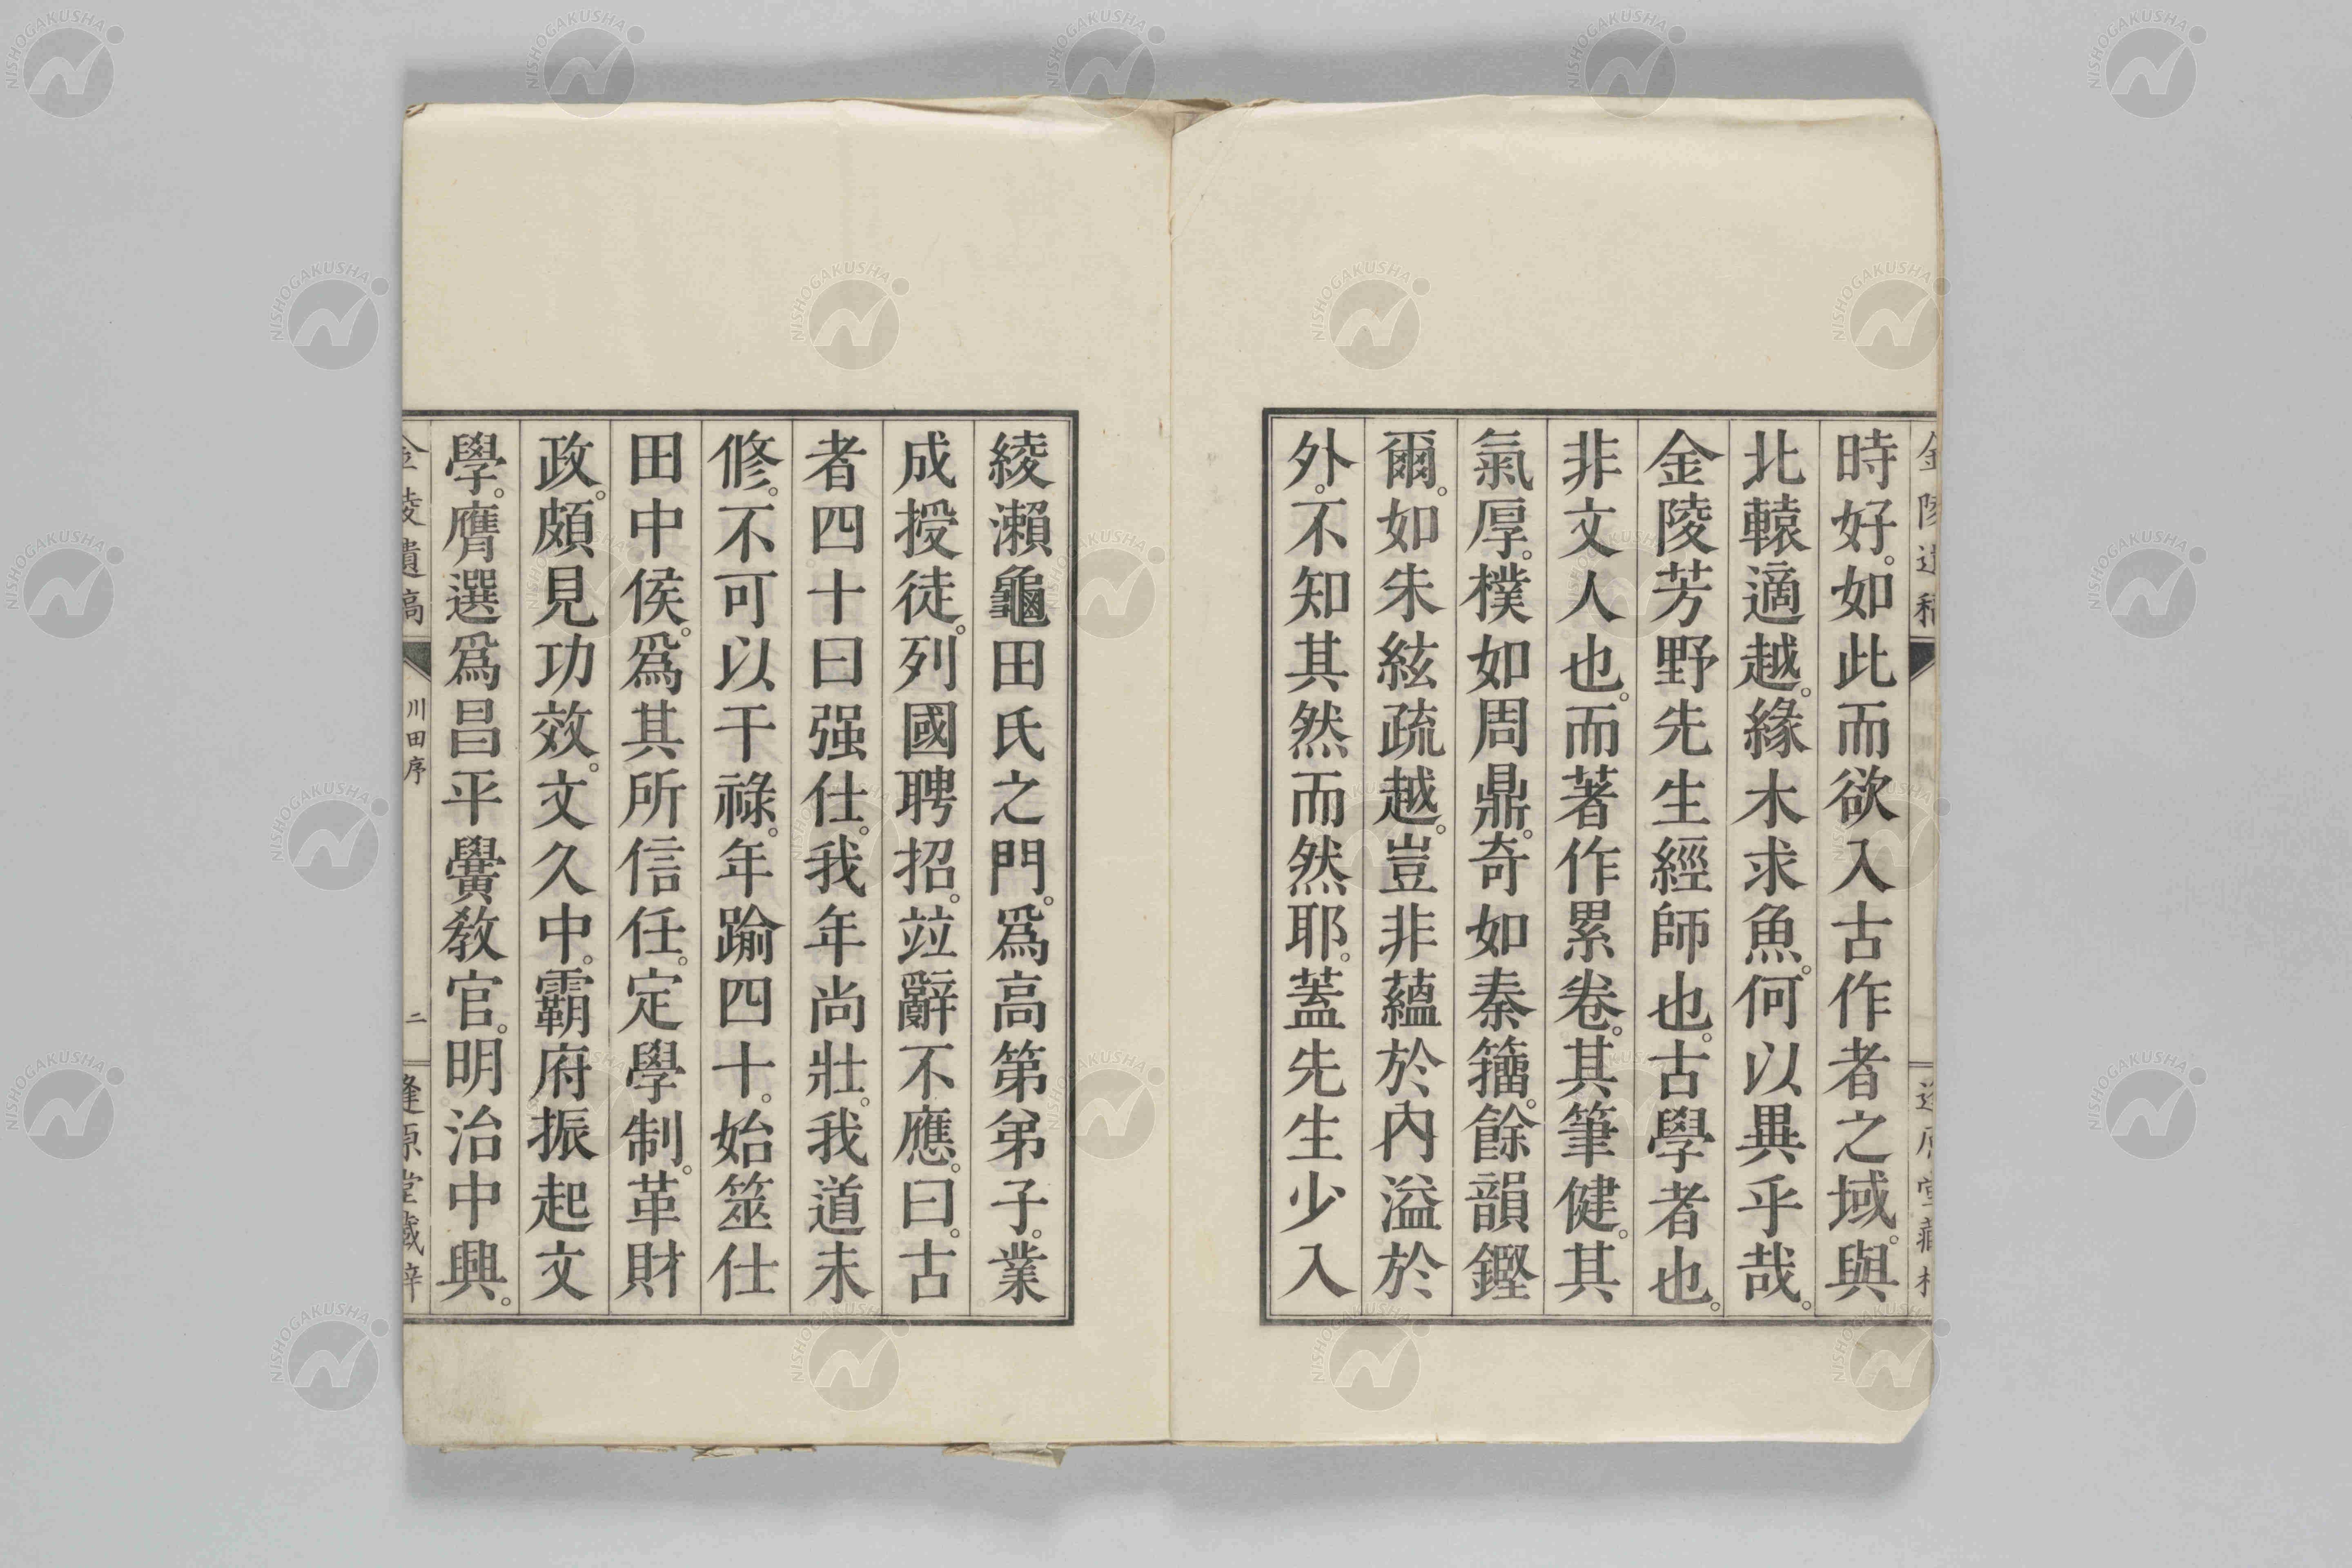 時好。如此而欲入古作者之域。與
北轅適越。緣木求魚。何以異乎哉。
金陵芳野先生經師也。古學者也。
非文人也。而著作累卷。其筆健。其
氣厚。樸如周鼎。奇如秦籀。餘韻鏗
爾。如朱絃疏越。豈非蘊於內溢於
外。不知其然而然耶。蓋先生少入
綾瀨龜田氏之門。爲高第弟子。業
成授徒。列國聘招。竝辭不應。曰。古
者四十曰强仕。我年尚壯。我道未
修。不可以干祿。年踰四十。始筮仕
田中侯。爲其所信任。定學制。革財
政。頗見功效。文久中。霸府振起文
學。膺選爲昌平黌教官。明治中興。
金陵遺稿
川田序
二
逢原堂藏梓
NISHOGAKUSHA